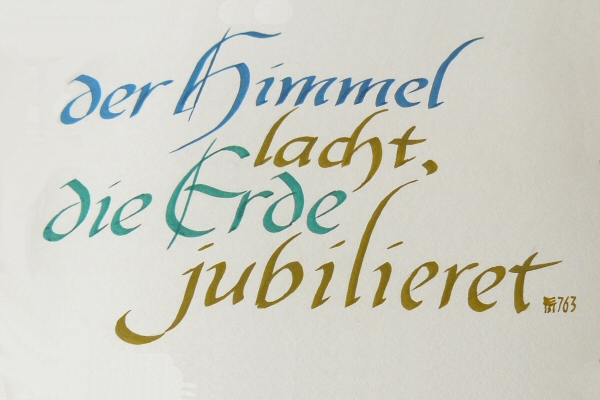 der Himmel
lacht,
die Erde
jubilieret
763